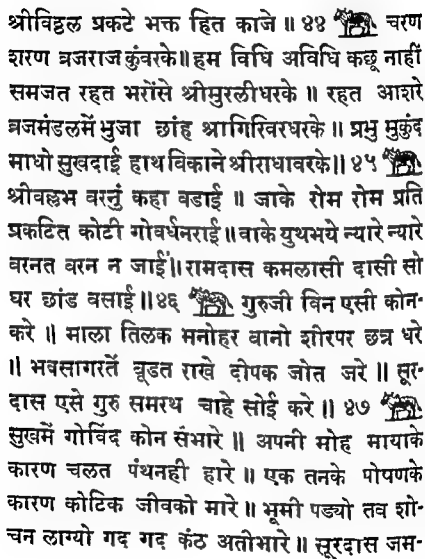 श्रीविठ्ठल प्रकटे भक्त हित काजे ॥ ४४ चरण
शरण व्रजराज कुंवरके॥ हम विधि अविधि कछू नाहीं
समजत रहत भरोंसे श्रीमुरलीधरके ॥ रहत आशरे
व्रजमंडलमें भुजा छांह श्रागिरिवरधरके ॥ प्रभु मुकुंद
माधो सुखदाई हाथ विकाने श्रीराधावरके॥ ४५
श्रीवल्लभ वरनुं कहा वडाई ॥ जाके रोम रोम प्रति
प्रकटित कोटी गोवर्धनराई॥ वाके युथभये न्यारे न्यारे
वरनत वरन न जाईं॥ रामदास कमलासी दासी सो
घर छांड वसाई॥ ४६ गुरुजी विन एसी कोन-
करे ॥ माला तिलक मनोहर वानो शीरपर छत्र धरे
॥ भवसागरतें वूडत राखे दीपक जोत जरे ॥ सूर-
दास एसे गुरु समरथ चाहे सोई करे ॥ ४७
सुखमें गोविंद कोन संभारे ॥ अपनी मोह मायाके
कारण चलत पंथनही हारे ॥ एक तनके पोषणके
कारण कोटिक जीवको मारे ॥ भूमी पड्यो तव शो-
चन लाग्यो गद गद कंठ अतीभारे ॥ सूरदास जम-